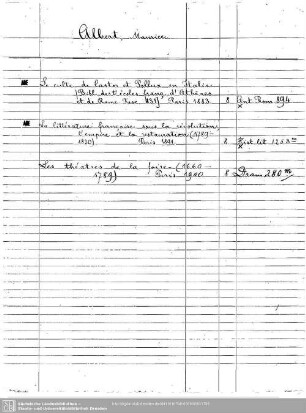 Albert, Maurice
Le culte de Castor et Pollux en Italie
(Bibl. des écoles franç. d'Athènes
et de Rome Fasc. 31) Paris 1883 8 Ant. Rom 194
La littérature française sous la révolution,
l'empire et la restauration (1789-
1830) Paris 1891 8 Hist. lit 1253 m
Les théâtres de la foire (1660-
1789) Paris 1900 8 Dram 280 m
Sächsische Landesbibliothek -
Staats- und Universitätsbibliothek Dresden